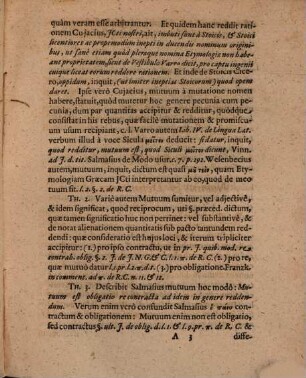 quàm veram esse arbitrantur. Et quidem hanc reddit rati-
onem Cujacius, JCti nostri, ait, imbuti sunt à Stoicis, & Stoici
licentiores ac propemodùm inepti in ducendis nominum origini-
bus, ut sanè etiam quòd pleraque nomina Etymologiæ non habe-
ant proprietatem, sicut de Vestibulis Varro dicit, pro captu ingenii
cujusque liceat veriorem reddere rationem. Et inde de Stoicis Cice-
ro, appidum, inquit, (ut imiter ineptias Stoicorum) quod opem
daret. Ipse verò Cujacius, mutuum à mutatione nomen
habere, statuit, quòd mutetur hoc genere pecunia cum pecu-
nia, cùm par quantitas accipitur & redditur, quódque
consistat in his rebus, quæ facilè mutationem & promiscu-
um usum recipiant, c. l. Varro autem Lib. IV. de Lingua Lat.
verbum illud à voce Siculâ deducit: sic datur, inquit,
quod redditur, mutuum est, quod Siculi dicunt, Vinn.
ad J. d. tit. Salmasius de Modo usur. c. 7. p. 291. Wesenbecius
autem, mutuum, inquit, dicitur est quasi quam Ety-
mologiam Græcam JCti interpretantur ab eo, quod de meo
tuum fit. l. 2. §. 2. de R. C.
TH. 2. Variè autem Mutuum sumitur, vel adjectivè, &
& idem significat, quod reciprocum, uti §. præced. dictum,
quæ tamen significatio huc non pertinet: vel substantivè, &
de notat alienationem quantitatis sub pacto tantundem red-
dendi: quæ consideratio est hujus loci, & iterum tripliciter
accipitur: (1.) pro ipso contractu, ut in pr. J. quib. mod. re,
contrah. oblig. §. 2. J. de J. N. G. & C. l. 1. w. de R. C. (2.) pro re,
quæ mutuò datur (3.) pro obligatione. Franzk.
in comment. ad w. de R. C. n. 11. & 12.
TH. 3. Describit Salmasius mutuum hoc modo: Mu-
tuum est obligatio re contracta ad idem in genere redden-
dum. Verum enim verò confundit Salmasius
contractum & obligationem: Mutuum enim non est obligatio,
sed contractus §. ult. J. de oblig. d. l. 1. & l. 9. pr. w. de R. C. &
A 3 diffe-